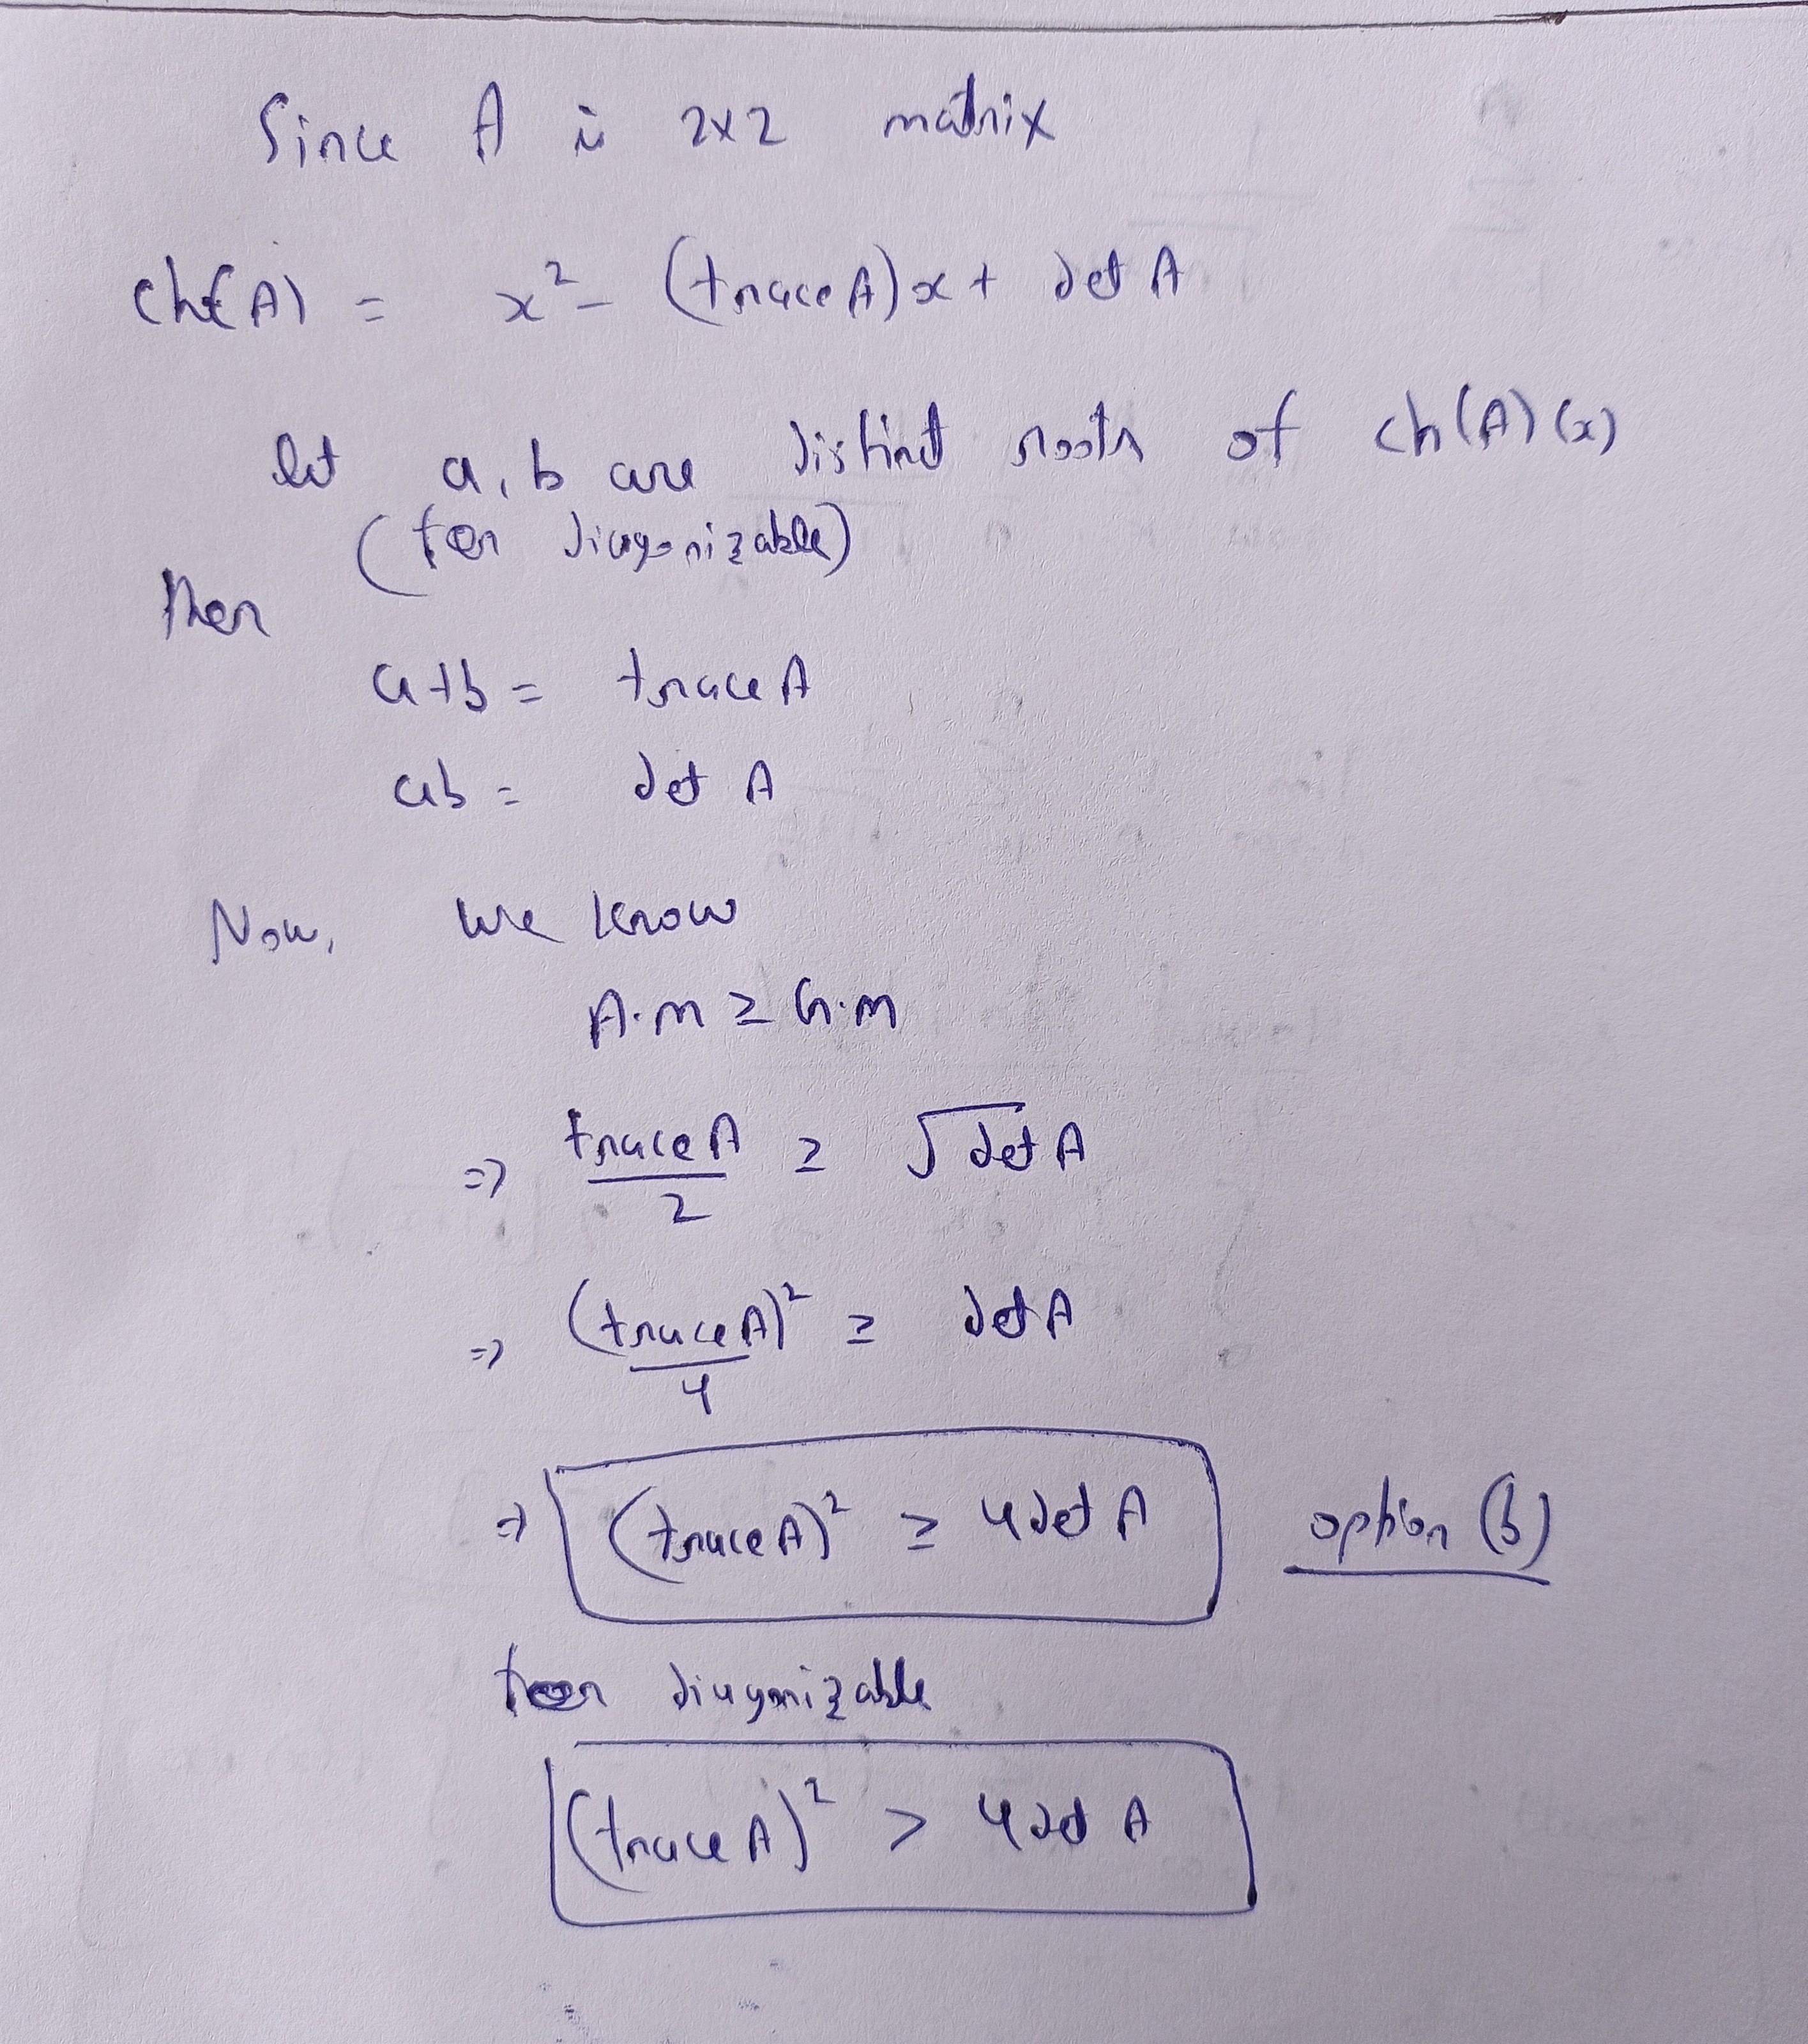 Since A is 2x2 matrix
ch(A) = x² - (trace A)x + det A
let a, b are distinct roots of ch(A)(x)
(for diagonizable)
then
a+b = trace A
ab = det A
Now, we know
A.m ≥ G.m
⇒ trace A / 2 ≥ √det A
⇒ (trace A)² / 4 ≥ det A
⇒ (trace A)² ≥ 4 det A option (b)
for diagonizable
(trace A)² > 4 det A